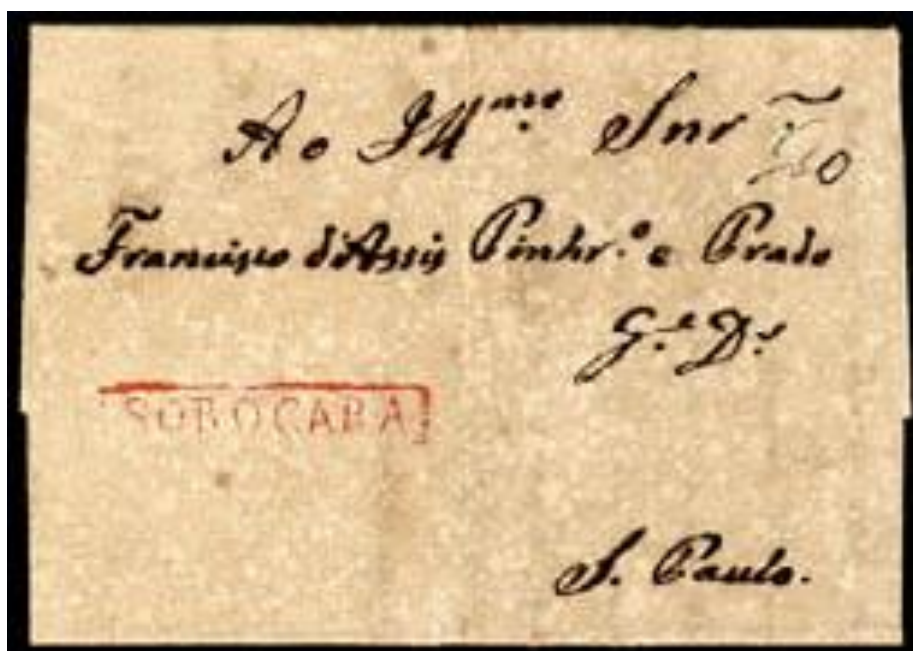 Ao Ill.mo Snr
Francisco d'Assis Pinhr.o e Prado
G.e D.s
SOROCABA
S. Paulo.